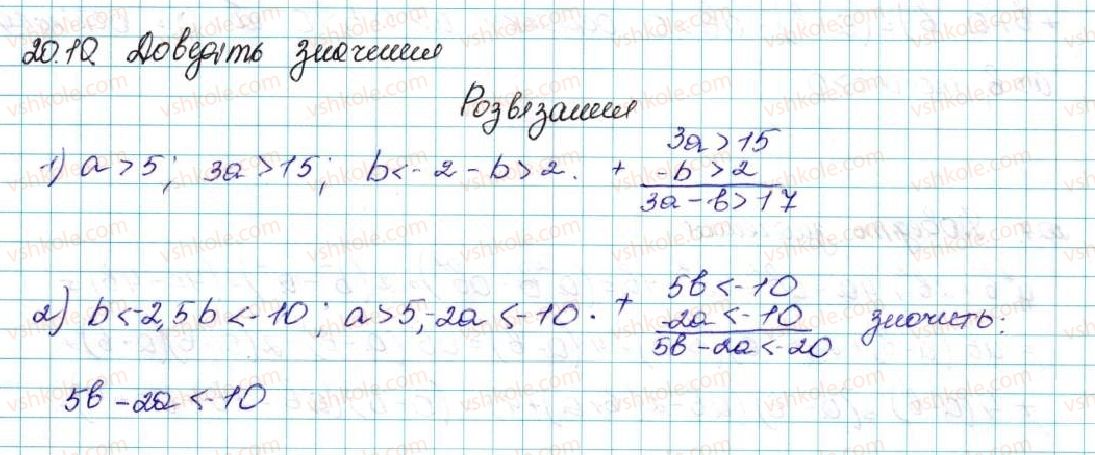 20.10. Доведіть значення
Розвязання
1) a > 5; 3a > 15; b < -2 - b > 2. + 3a > 15
-b > 2
3a - b > 17
2) b < -2, 5b < -10; a > 5, -2a < -10. + 5b < -10
-2a < -10 значить:
5b - 2a < -20
5b - 2a < -10